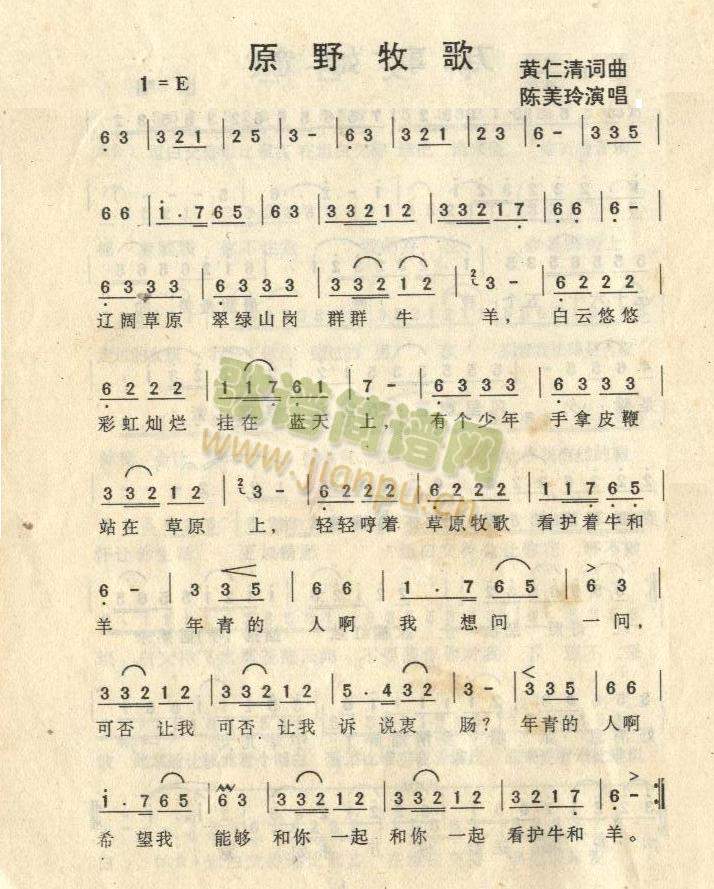 原野牧歌
黄仁清词曲
1 = E
陈美玲演唱
6 3 | 3 2 1 | 2 5 | 3 - | 6 3 | 3 2 1 | 2 3 | 6 - | 3 3 5 |
6 6 | i · 7 6 5 | 6 3 | 3 3 2 1 2 | 3 3 2 1 7 | 6 6 | 6 - |
6 3 3 3 | 6 3 3 3 | 3 3 2 1 2 | 2 3 - | 6 2 2 2 |
辽阔草原 翠绿山岗 群群 牛 羊, 白云悠悠
6 2 2 2 | 1 1 7 6 1 | 7 - | 6 3 3 3 | 6 3 3 3 |
彩虹灿烂 挂在 蓝天 上, 有个少年 手拿皮鞭
3 3 2 1 2 | 2 3 - | 6 2 2 2 | 6 2 2 2 | 1 1 7 6 5 |
站在 草原 上, 轻轻哼着 草原牧歌 看护着牛和
6 - | 3 3 5 | 6 6 | 1 · 7 6 5 | 6 3 |
羊 年青的 人啊 我 想问 一问,
3 3 2 1 2 | 3 3 2 1 2 | 5 · 4 3 2 | 3 - | 3 3 5 | 6 6 |
可否 让我 可否 让我 诉 说衷 肠? 年青的 人啊
i · 7 6 5 | 6 3 | 3 3 2 1 2 | 3 3 2 1 2 | 3 2 1 7 | 6 - :||
希 望我 能够 和你 一起 和你 一起 看护牛和 羊。
歌谱简谱网
www.jianpu.cn